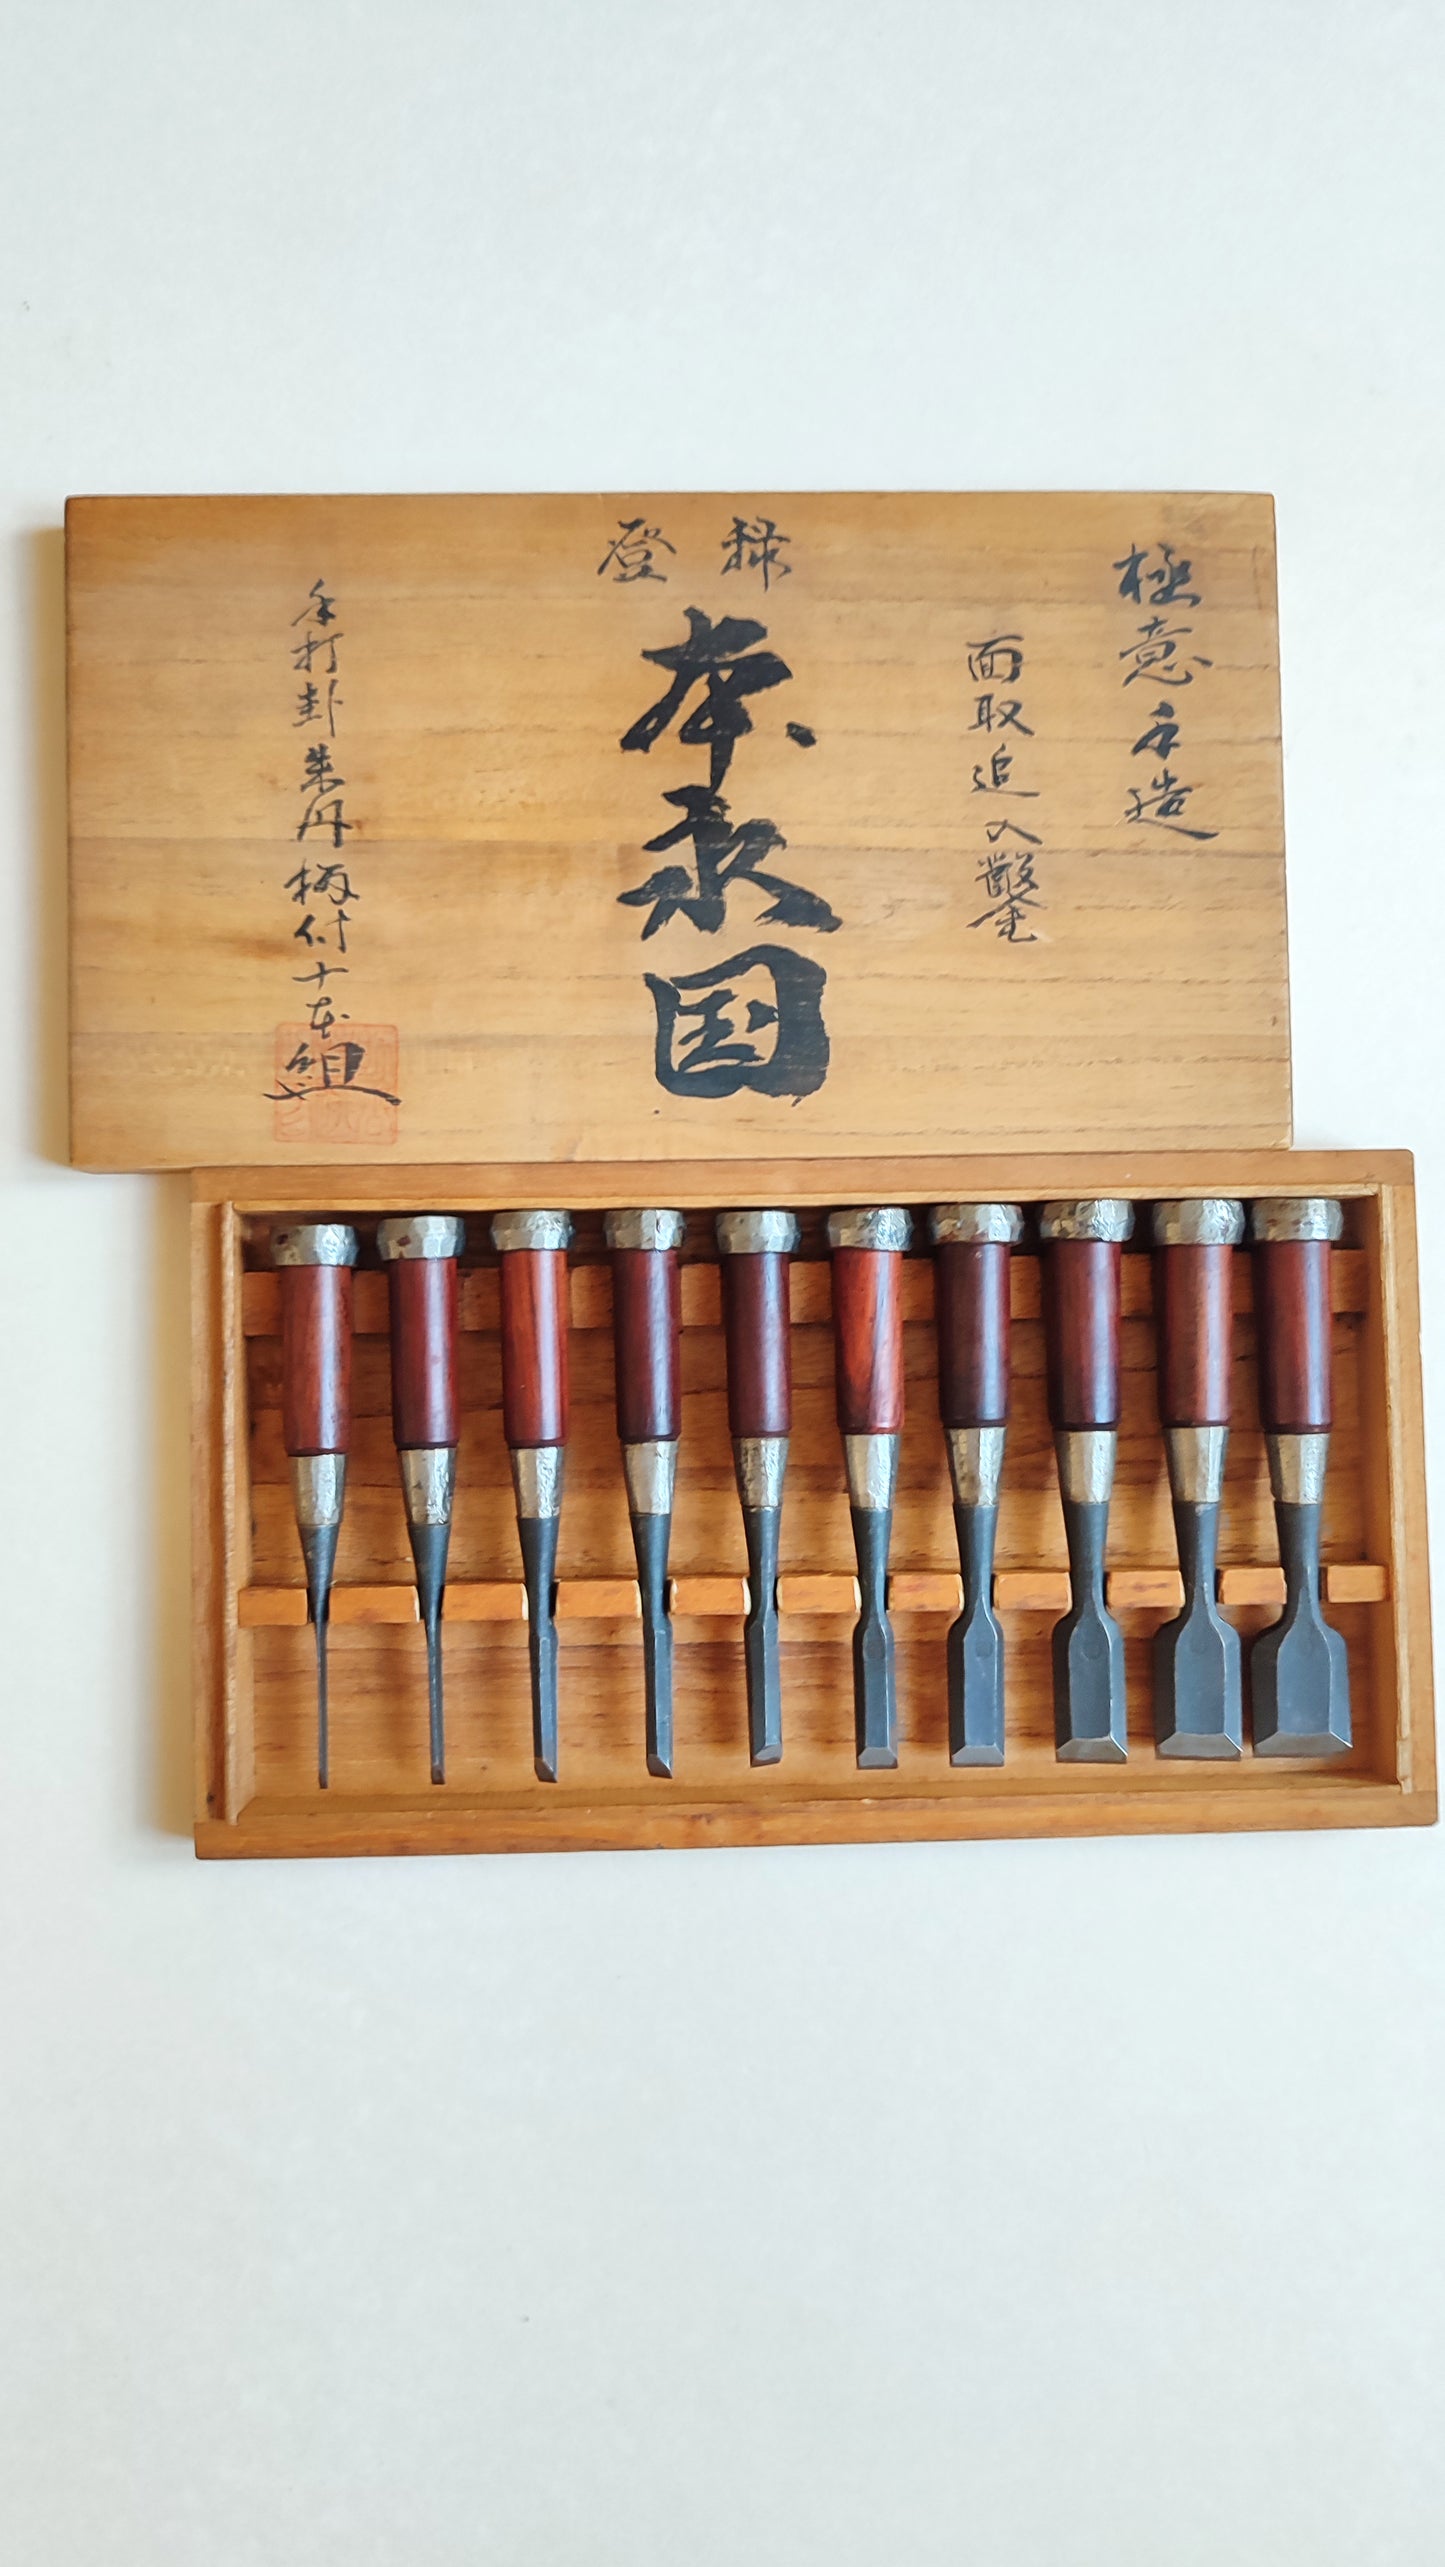 極意手造
面取追入鑿
登録
本永国
手打卦朱丹柄付十本組